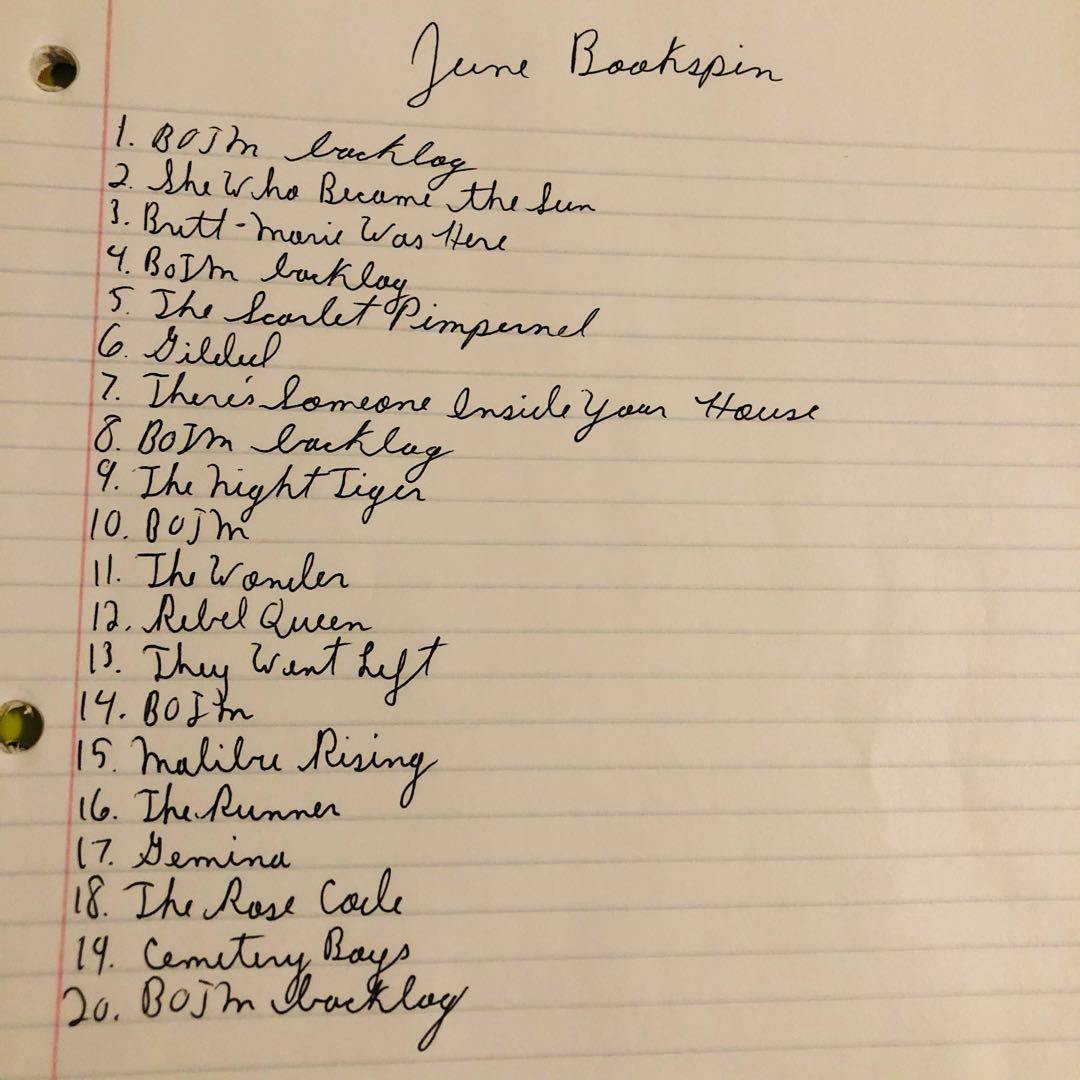 June Bookspin
1. BOTM backlog
2. She Who Became the Sun
3. Britt-Marie Was Here
4. BOTM backlog
5. The Scarlet Pimpernel
6. Gilded
7. There's Someone Inside Your House
8. BOTM backlog
9. The Night Tiger
10. BOTM
11. The Wonder
12. Rebel Queen
13. They Went Left
14. BOTM
15. Malibu Rising
16. The Runner
17. Gemina
18. The Rose Code
19. Cemetery Boys
20. BOTM backlog